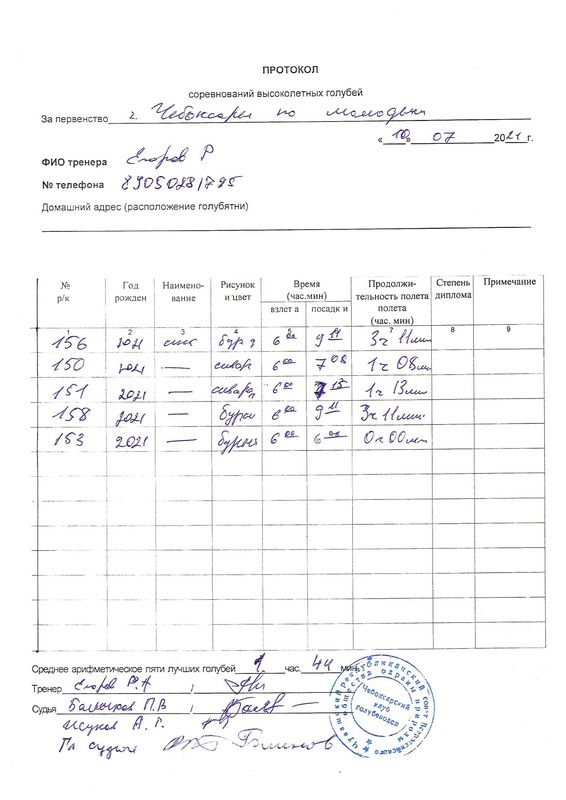 ПРОТОКОЛ
соревнований высоколетных голубей
За первенство г. Чебоксары по молодым
«10» 07 2021 г.
ФИО тренера Егоров Р
№ телефона 89050281795
Домашний адрес (расположение голубятни)
№ р/к Год рожден Наимено-вание Рисунок и цвет Время (час.мин) взлет а посадк и Продолжи-тельность полета полета (час. мин) Степень диплома Примечание
1 2 3 4 5 6 7 8 9
156 2021 6 00 9 11 3ч 11мин
150 2021 — 6 00 7 08 1ч 08мин
151 2021 — 6 00 7 13 1ч 13мин
158 2021 — бурый 6 00 9 11 3ч 11мин.
153 2021 — бурый 6 00 6 00 0ч 00мин
Среднее арифметическое пяти лучших голубей 1 час. 44 мин.
Тренер Егоров Р.А /
Судья П.В /
А. Г.
Гл судья Блинов
Чувашский республиканский совет Всероссийского общества охраны природы
Чебоксарский клуб голубеводов